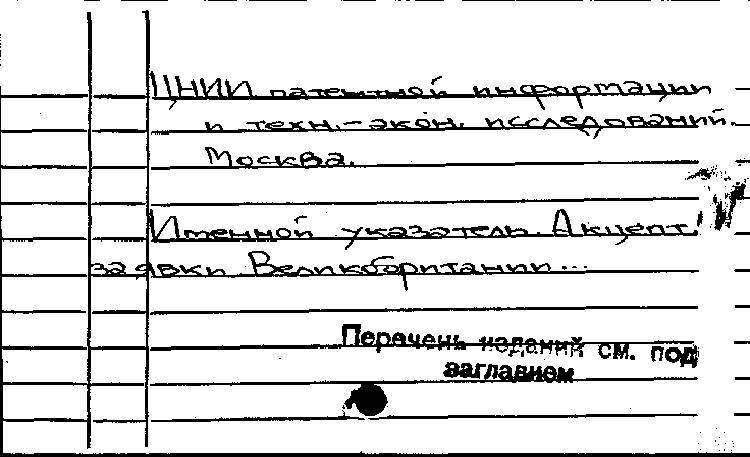 ЦНИИ патентной информации
и техн.-экон. исследований.
Москва.
Именной указатель. Акцепт.
заявки Великобритании...
Перечень изданий см. под
заглавием